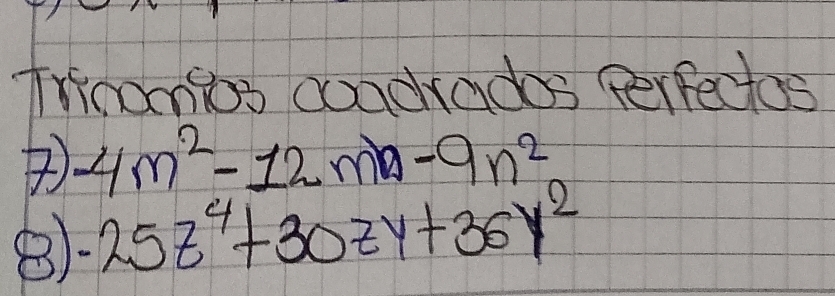 Trinomios cuadrados Perfectos
7) -4m² - 12 mn - 9n²
8) -25z⁴ + 30zy + 36y²